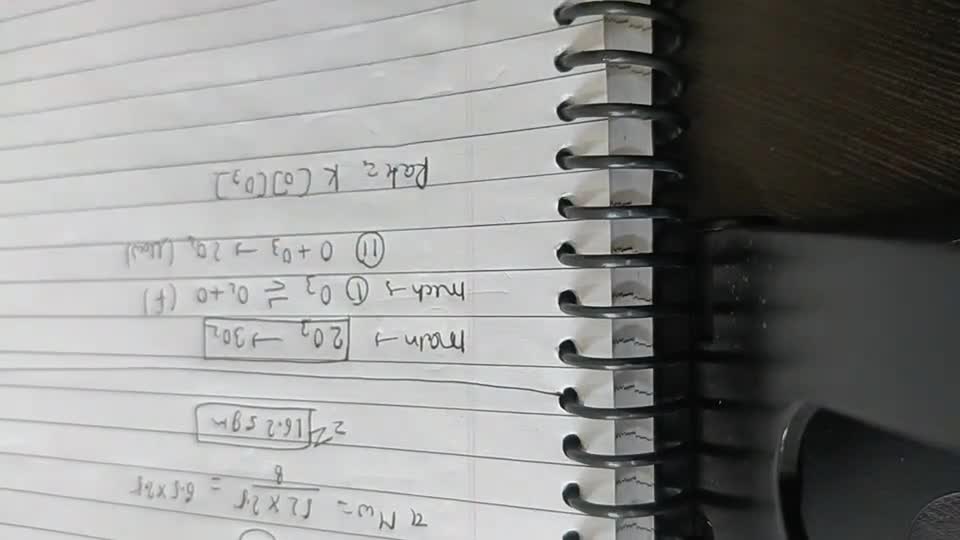 Mw = 52 × 2.5 / 8 = 6.5 × 2.5
= 16.25 gm
main → 2O3 → 3O2
mech → ① O3 ⇌ O2 + O (f)
② O + O3 → 2O2 (slow)
Rate = k [O] [O3]